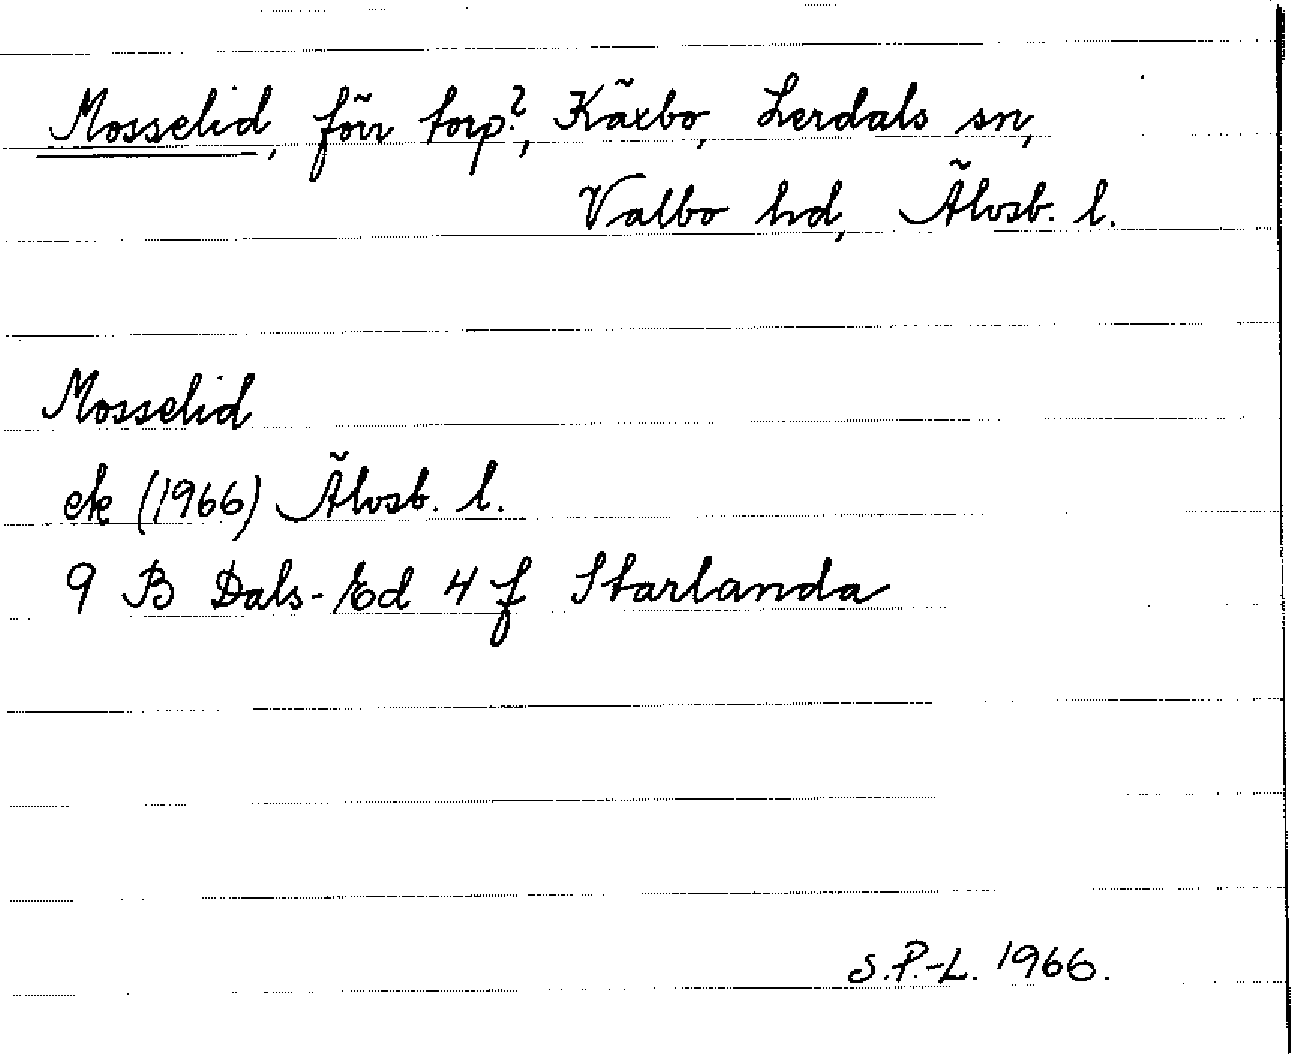 Mosselid, förr torp?, Käxbo, Lerdals sn,
Valbo hd, Älvsb. l.
Mosselid
ek (1966) Älvsb. l.
9 B Dals-Ed 4 f Starlanda
S.P.-L. 1966.